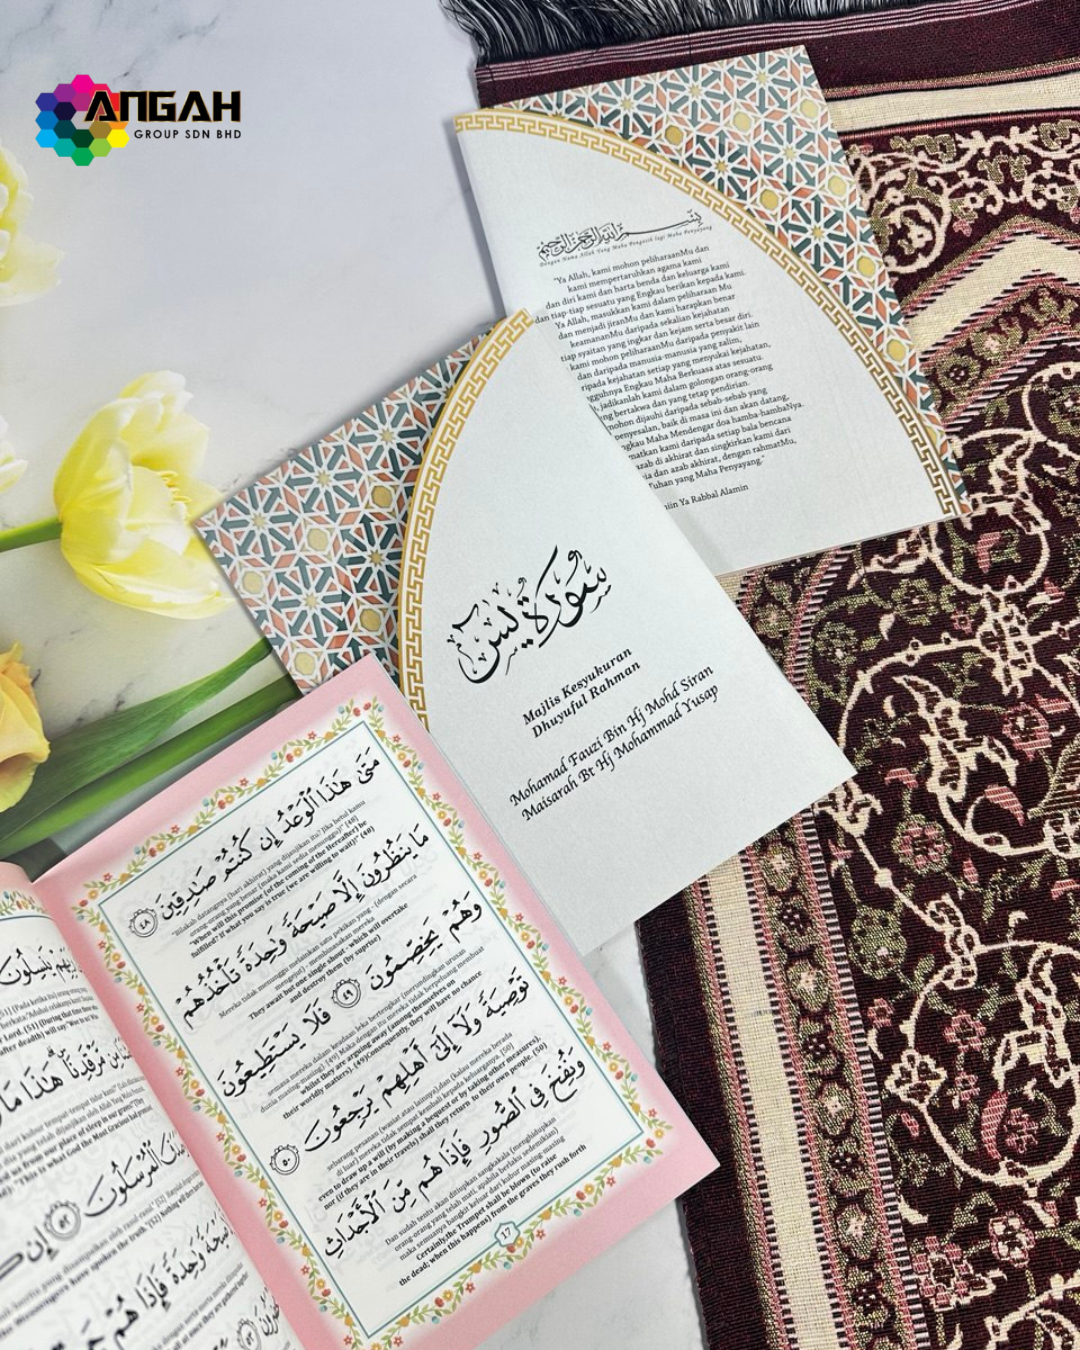 ANGAH
GROUP SDN BHD
بسم الله الرحمن الرحيم
Dengan Nama Allah Yang Maha Pengasih lagi Maha Penyayang
"Ya Allah, kami mohon peliharaanMu dan
kami mempertaruhkan agama kami
dan diri kami dan harta benda dan keluarga kami
dan tiap-tiap sesuatu yang Engkau berikan kepada kami.
Ya Allah, masukkan kami dalam peliharaan Mu
dan menjadi jiranMu dan kami harapkan benar
keamananMu daripada sekalian kejahatan
tiap syaitan yang ingkar dan kejam serta besar diri.
kami mohon peliharaanMu daripada penyakit lain
dan daripada manusia-manusia yang zalim,
kejahatan setiap yang menyukai kejahatan,
Engkau Maha Berkuasa atas sesuatu.
jadikanlah kami dalam golongan orang-orang
bertakwa dan yang tetap pendirian.
mohon dijauhi daripada sebab-sebab yang
penyesalan, baik di masa ini dan akan datang,
Maha Mendengar doa hamba-hambaNya.
kami daripada setiap bala bencana
azab di akhirat dan singkirkan kami dari
dan azab akhirat, dengan rahmatMu,
Tuhan yang Maha Penyayang."
Ya Rabbal Alamin
سورة يس
Majlis Kesyukuran
Dhuyuful Rahman
Mohamad Fauzi Bin Hj Mohd Siran
Maisarah Bt Hj Mohammad Yusap
مَتَىٰ هَٰذَا ٱلْوَعْدُ إِن كُنتُمْ صَٰدِقِينَ ٤٨
"Bilakah datangnya (hari akhirat) yang dijanjikan itu? Jika betul kamu
orang-orang yang benar (maka kami sedia menunggu)!" (48)
"When will this promise (of the coming of the Hereafter) be
fulfilled? If what you say is true (we are willing to wait)!" (48)
مَا يَنظُرُونَ إِلَّا صَيْحَةً وَٰحِدَةً تَأْخُذُهُمْ
Mereka tidak menunggu melainkan satu pekikan yang - (dengan secara
mengejut) - membinasakan mereka
They await but one single shout - which will overtake
and destroy them (by suprise)
وَهُمْ يَخِصِّمُونَ ٤٩ فَلَا يَسْتَطِيعُونَ
semasa mereka dalam keadaan leka bertengkar (mementingkan urusan
dunia masing-masing). (49) Maka dengan itu mereka tidak berpeluang membuat
whilst they are arguing away (among themselves on
their worldly matters). (49)Consequently, they will have no chance
تَوْصِيَةً وَلَآ إِلَىٰٓ أَهْلِهِمْ يَرْجِعُونَ ٥٠
sebarang pesanan (wasiat atau lainnya),dan (kalau mereka berada
di luar) mereka tidak sempat kembali kepada keluarganya. (50)
even to draw up a will (by making a bequest or by taking other measures),
nor (if they are in their travels) shall they return to their own people. (50)
وَنُفِخَ فِى ٱلصُّورِ فَإِذَا هُم مِّنَ ٱلْأَجْدَاثِ
Dan sudah tentu akan ditiupkan sangkakala (menghidupkan
orang-orang yang telah mati, apabila berlaku sedemikian)
maka semuanya bangkit keluar dari kubur masing-masing
Certainly,the Trumpet shall be blown (to raise
the dead; when this happens) from the graves they rush forth
17